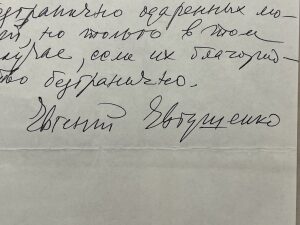 безгранично одаренных лю-
ей, но только в том
случае, если их благород-
тво безгранично.
Евгений Евтушенко